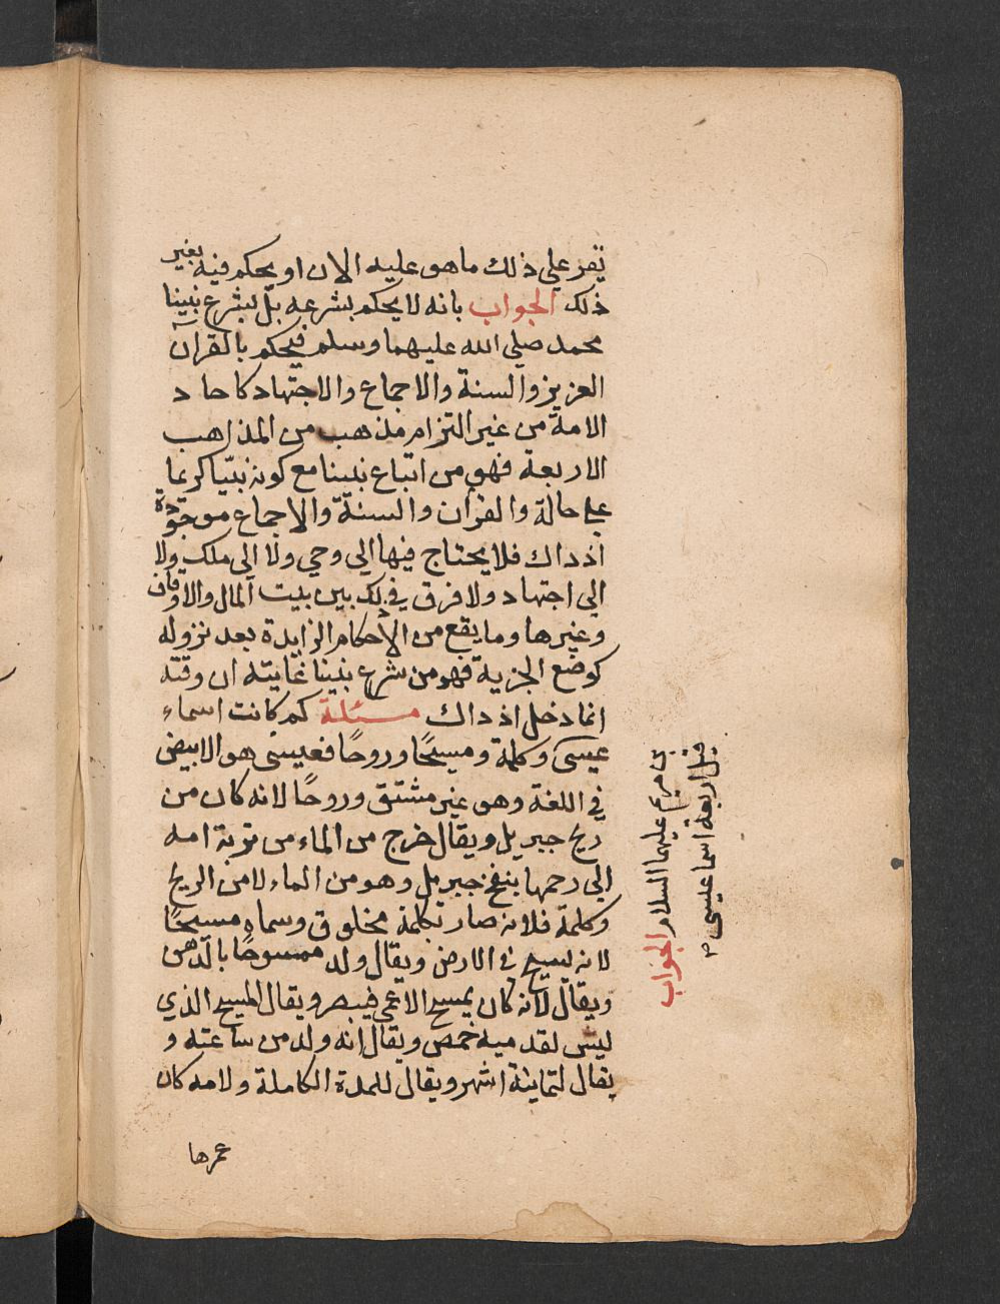 يقر علي ذلك ما هو عليه الان او يحكم فيه بغير
ذلك الجواب بانه لا يحكم بشرعه بل بشرع نبينا
محمد صلي الله عليهما وسلم فيحكم بالقرآن
العزيز والسنة والاجماع والاجتهاد كاحاد
الامة من غير التزام مذهب من المذاهب
الاربعة فهو من اتباع نبينا مع كونه نبيّا كريما
علي حالة والقران والسنّة والاجماع موجودة
اذ داك فلا يحتاج فيها الي وحي ولا الي ملك ولا
الي اجتهاد ولا فرق في ذلك بين بيت المال والاوقاف
وغيرها وما يقع من الأحكام الزايدة بعد نزوله
كوضع الجزية فهو من شرع نبينا غايته ان وقته
انما دخل اذ داك مسئلة كم كانت اسماء
عيسى وكلمة ومسيحًا وروحًا فعيسى هو الابيض
في اللغة وهو غير مشتق وروحًا لانه كان من
ريح جبريل ويقال خرج من الماء من تربة امه
الي رحمها بنفخ جبريل وهو من الماء لا من الريح
وكلمة فلانه صار بكلمة مخلوق وسماه مسيحًا
لانه يسيح في الارض ويقال ولد ممسوحًا بالدهن
ويقال لانه كان يمسح الاعمى فيبصر ويقال المسيح الذي
ليس لقدميه خمص ويقال انه ولد من ساعته و
يقال لثمانية اشهر ويقال للمدة الكاملة ولامه كان
عمرها
بن مريم عليهما السلام الجواب
قيل اربعة اسما عيسى